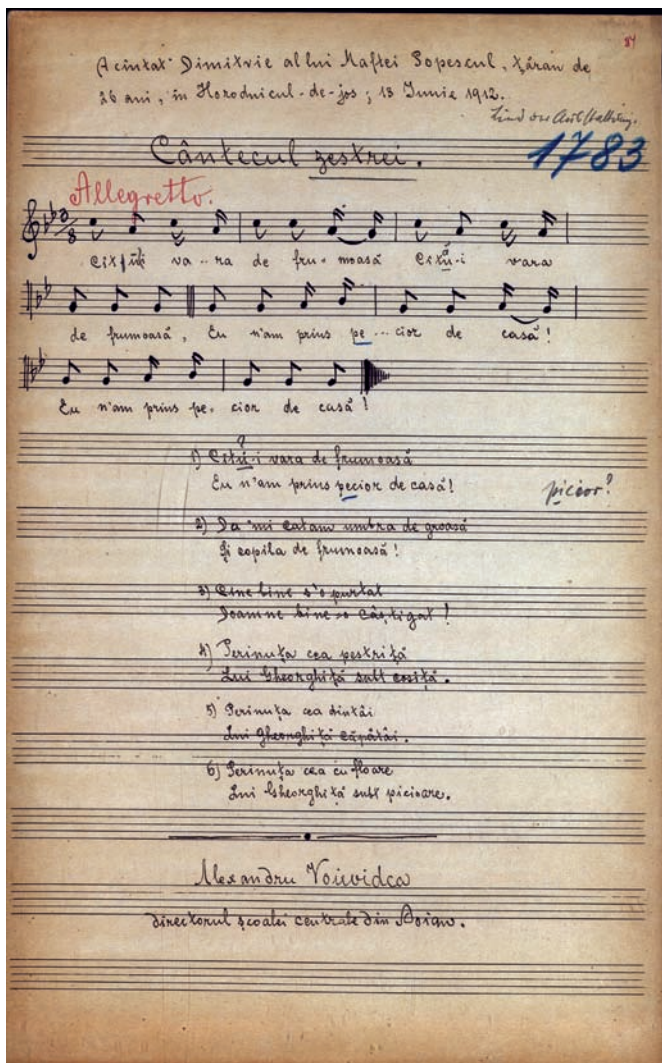 84
A cîntat Dimitrie al lui Maftei Popescul, țăran de
26 ani, în Horodnicul-de-jos; 13 Iunie 1912.
1783
Cântecul zestrei.
Allegretto.
3/8
va..ra de fru-moasă Cîtu-i vara
de frumoasă, Eu n'am prins pe...cior de casă!
Eu n'am prins pe-cior de casă!
?
1) Cîtu-i vara de frumoasă
Eu n'am prins pecior de casă!
picior?
2) Da 'mi catam umbra de groasă
Și copila de frumoasă!
3) Cine bine s'o purtat
Doamne bine-o câștigat!
4) Perinuța cea pestriță
Lui Gheorghiță subt cosiță.
5) Perinuța cea dintâi
Lui Gheorghiță căpătâi.
6) Perinuța cea cu floare
Lui Gheorghiță subt picioare.
Alexandru Voievidca
directorul școalei centrale din Boian.